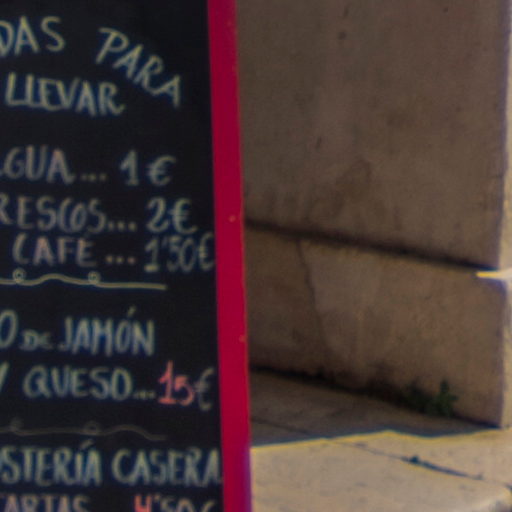 DAS PARA
LLEVAR
AGUA... 1€
RESCOS... 2€
CAFÉ ... 1'50€
O DE JAMÓN
Y QUESO... 15€
OSTERÍA CASERA
TARTAS 4'50€